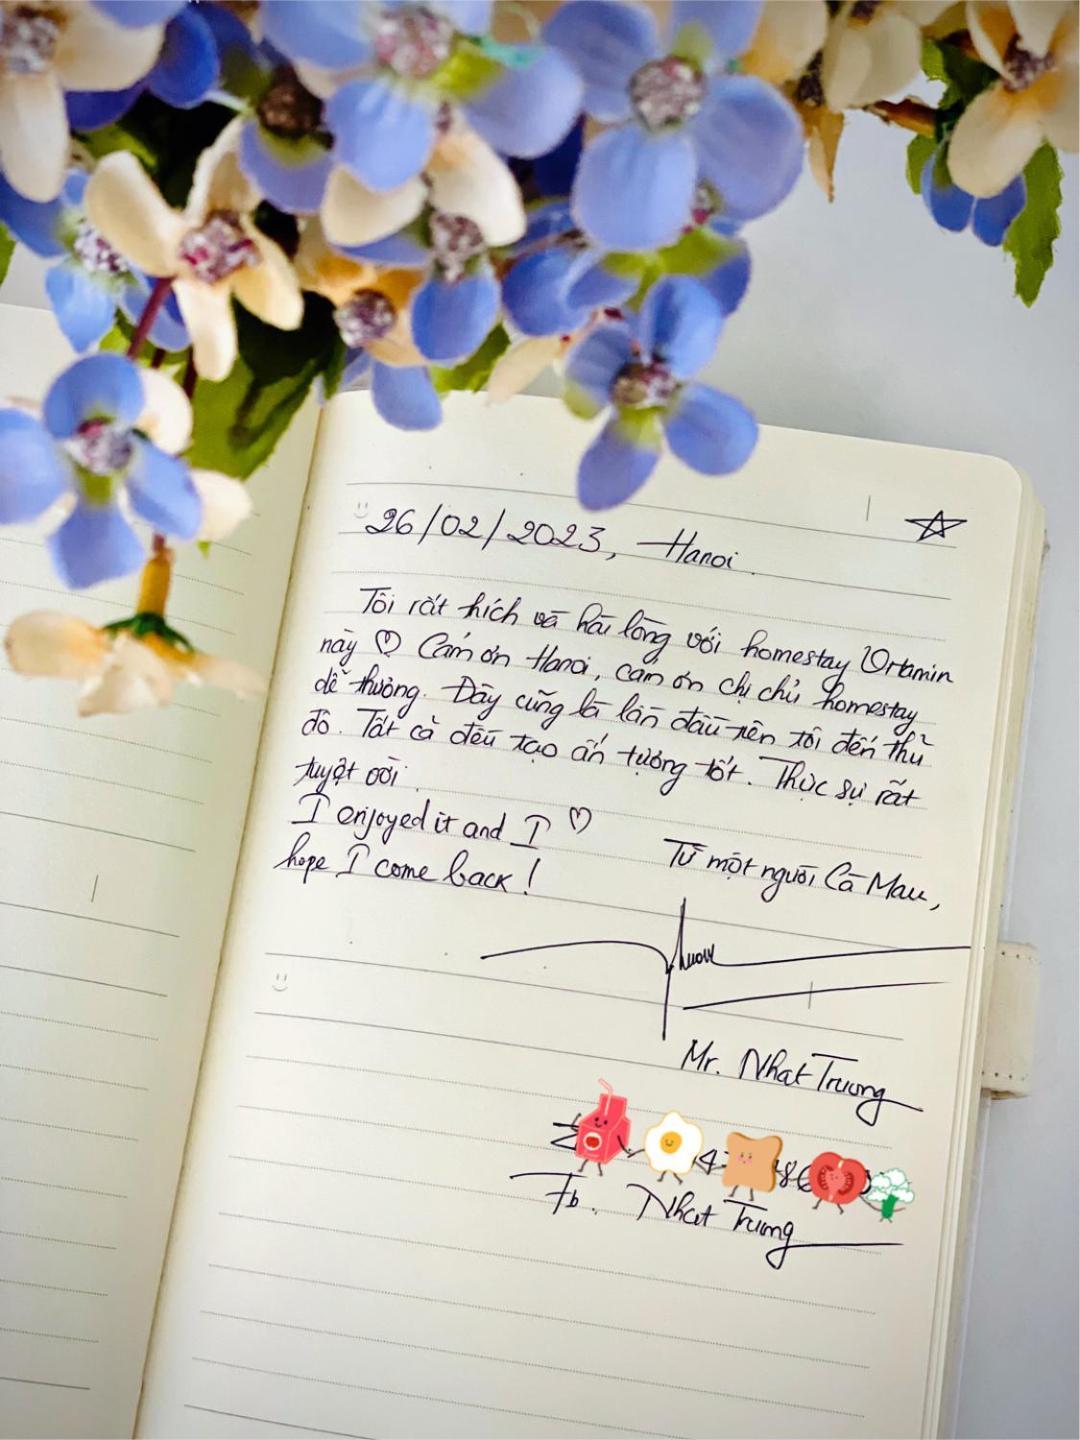 26/02/2023, Hanoi
Tôi rất thích và hài lòng với homestay Ortamin
này ♡ Cảm ơn Hanoi, cảm ơn chị chủ homestay
dễ thương. Đây cũng là lần đầu tiên tôi đến thủ
đô. Tất cả đều tạo ấn tượng tốt. Thực sự rất
tuyệt vời.
I enjoyed it and I ♡
hope I come back!
Từ một người Cà Mau,
Mr. Nhật Trương
Fb. Nhật Trương